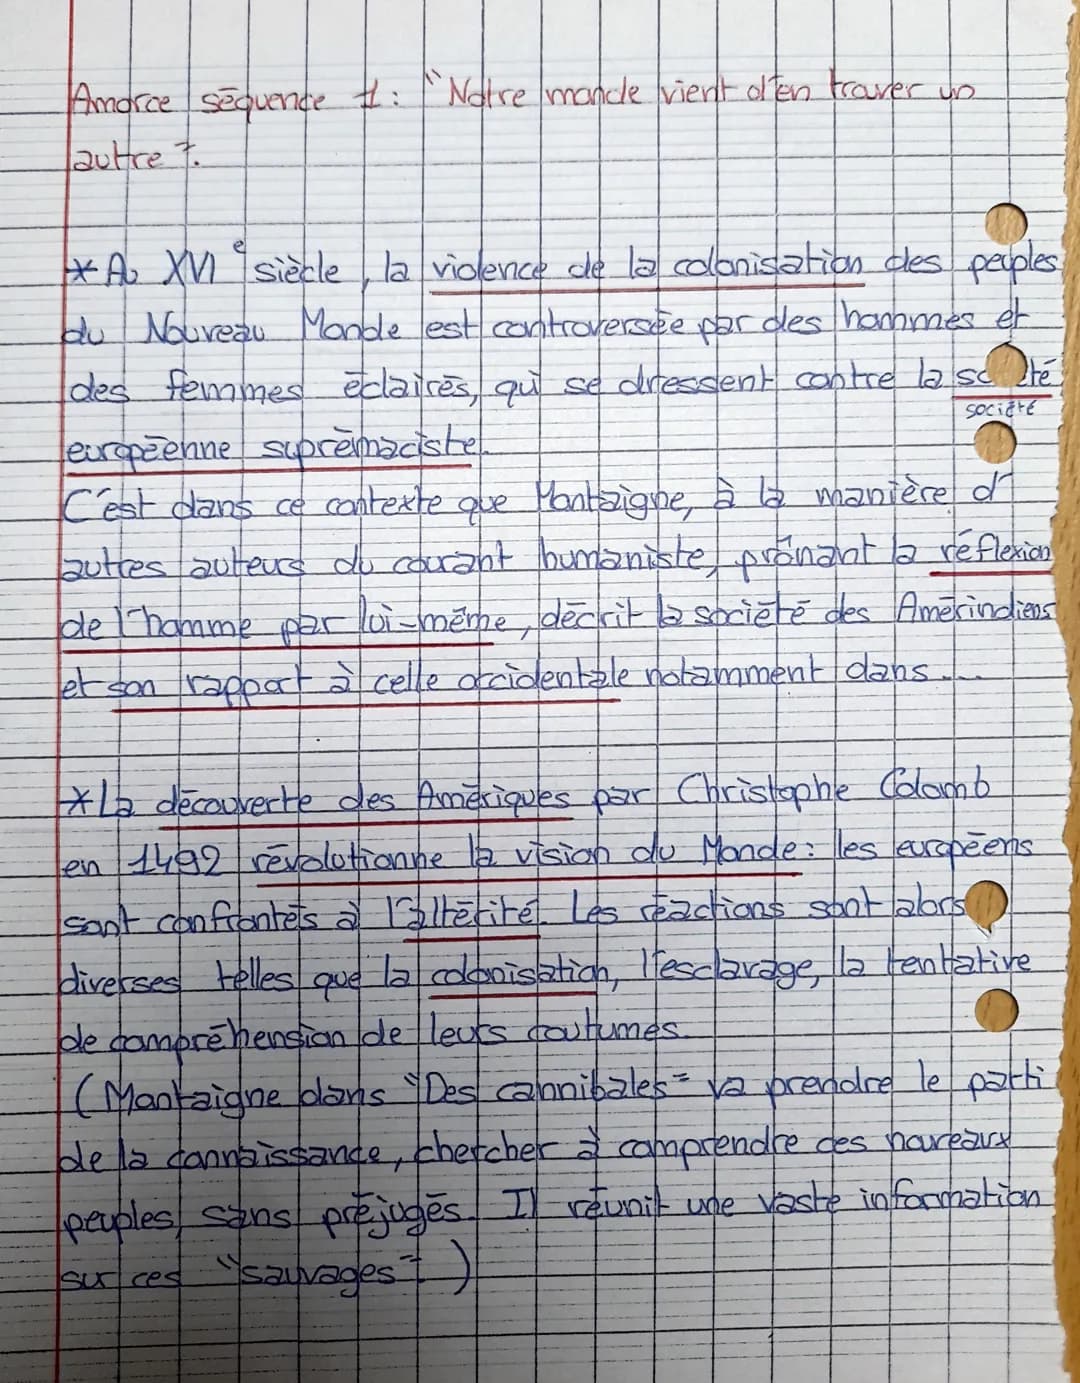 Amorce séquence 1 : "Notre monde vient d'en trouver un
autre".
* Au XVIe siècle, la violence de la colonisation des peuples
du Nouveau Monde est controversée par des hommes et
des femmes éclairés, qui se dressent contre la société
société
européenne suprémaciste.
C'est dans ce contexte que Montaigne, à la manière d'
autres auteurs du courant humaniste, prônant la réflexion
de l'homme par lui-même, décrit la société des Amérindiens
et son rapport à celle occidentale notamment dans....
* La découverte des Amériques par Christophe Colomb
en 1492 révolutionne la vision du Monde : les européens
sont confrontés à l'altérité. Les réactions sont alors
diverses telles que la colonisation, l'esclavage, la tentative
de compréhension de leurs coutumes.
(Montaigne dans "Des cannibales" va prendre le parti
de la connaissance, chercher à comprendre ces nouveaux
peuples sans préjugés. Il réunit une vaste information
sur ces "sauvages".)